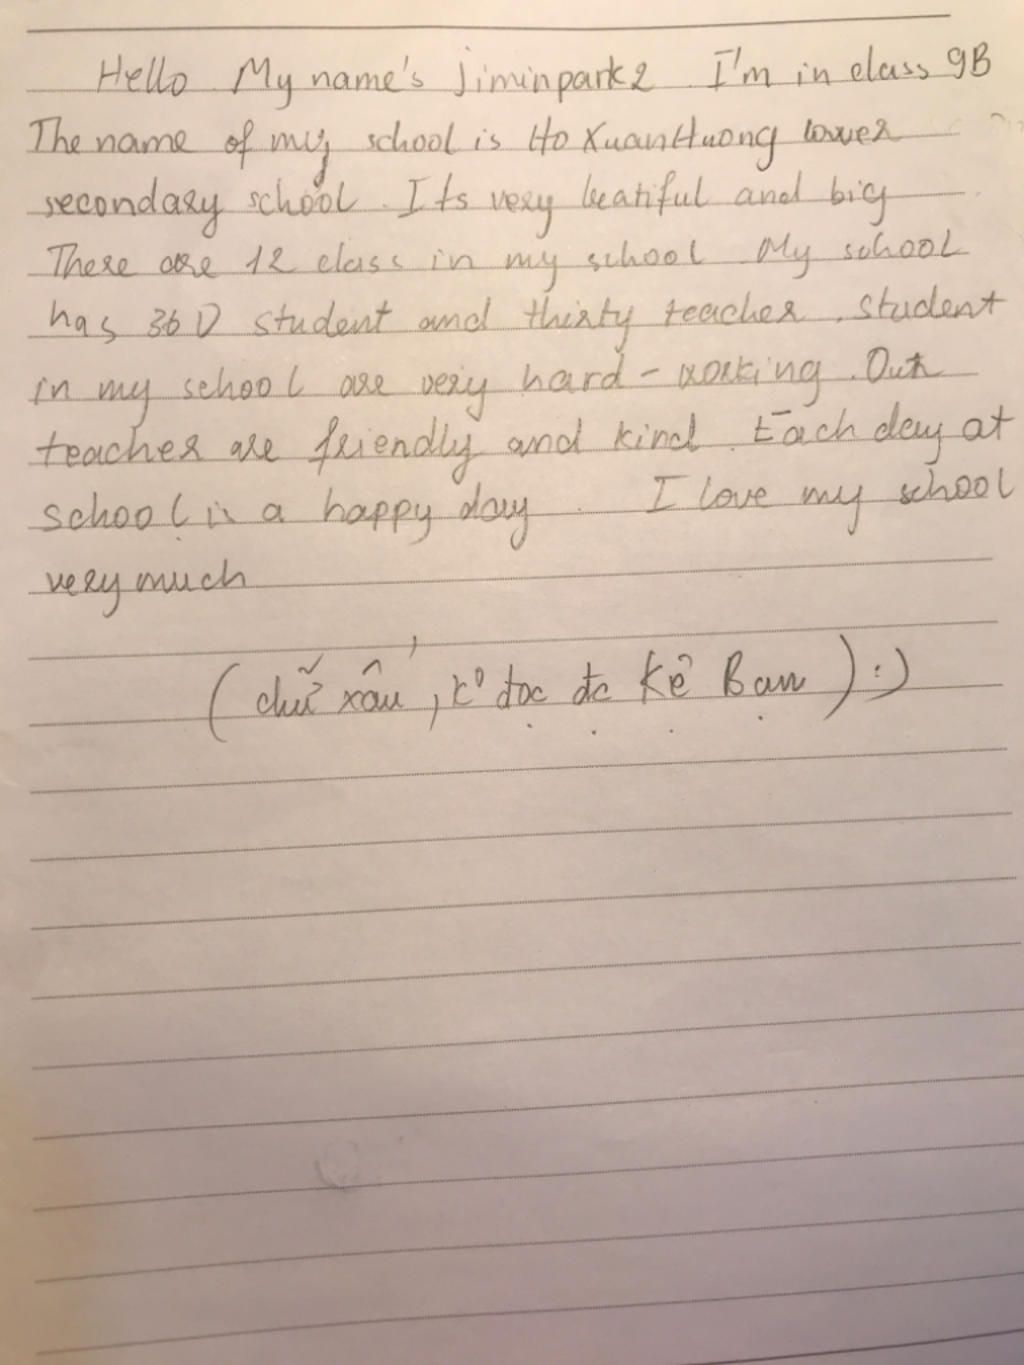 Hello My name's Jiminpark2 I'm in class 9B
The name of my school is Ho Xuan Huong lower
secondary school. Its very beatiful and big
There are 12 class in my school My school
has 360 student and thirty teacher. Student
in my school are very hard-working. Our
teacher are friendly and kind. Each day at
school is a happy day. I love my school
very much
(chữ xấu, k° đọc đc kệ Bạn) :)